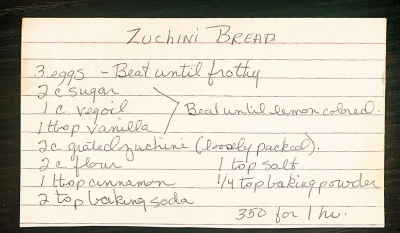 Zuchini Bread
3 eggs - Beat until frothy
2 c sugar
1 c vegoil
Beat until lemon colored.
1 tbsp vanilla
2c grated zuchini (loosely packed).
2 c flour 1 tsp salt
1 tbsp cinnamon 1/4 tsp baking powder
2 tsp baking soda
350 for 1 hr.